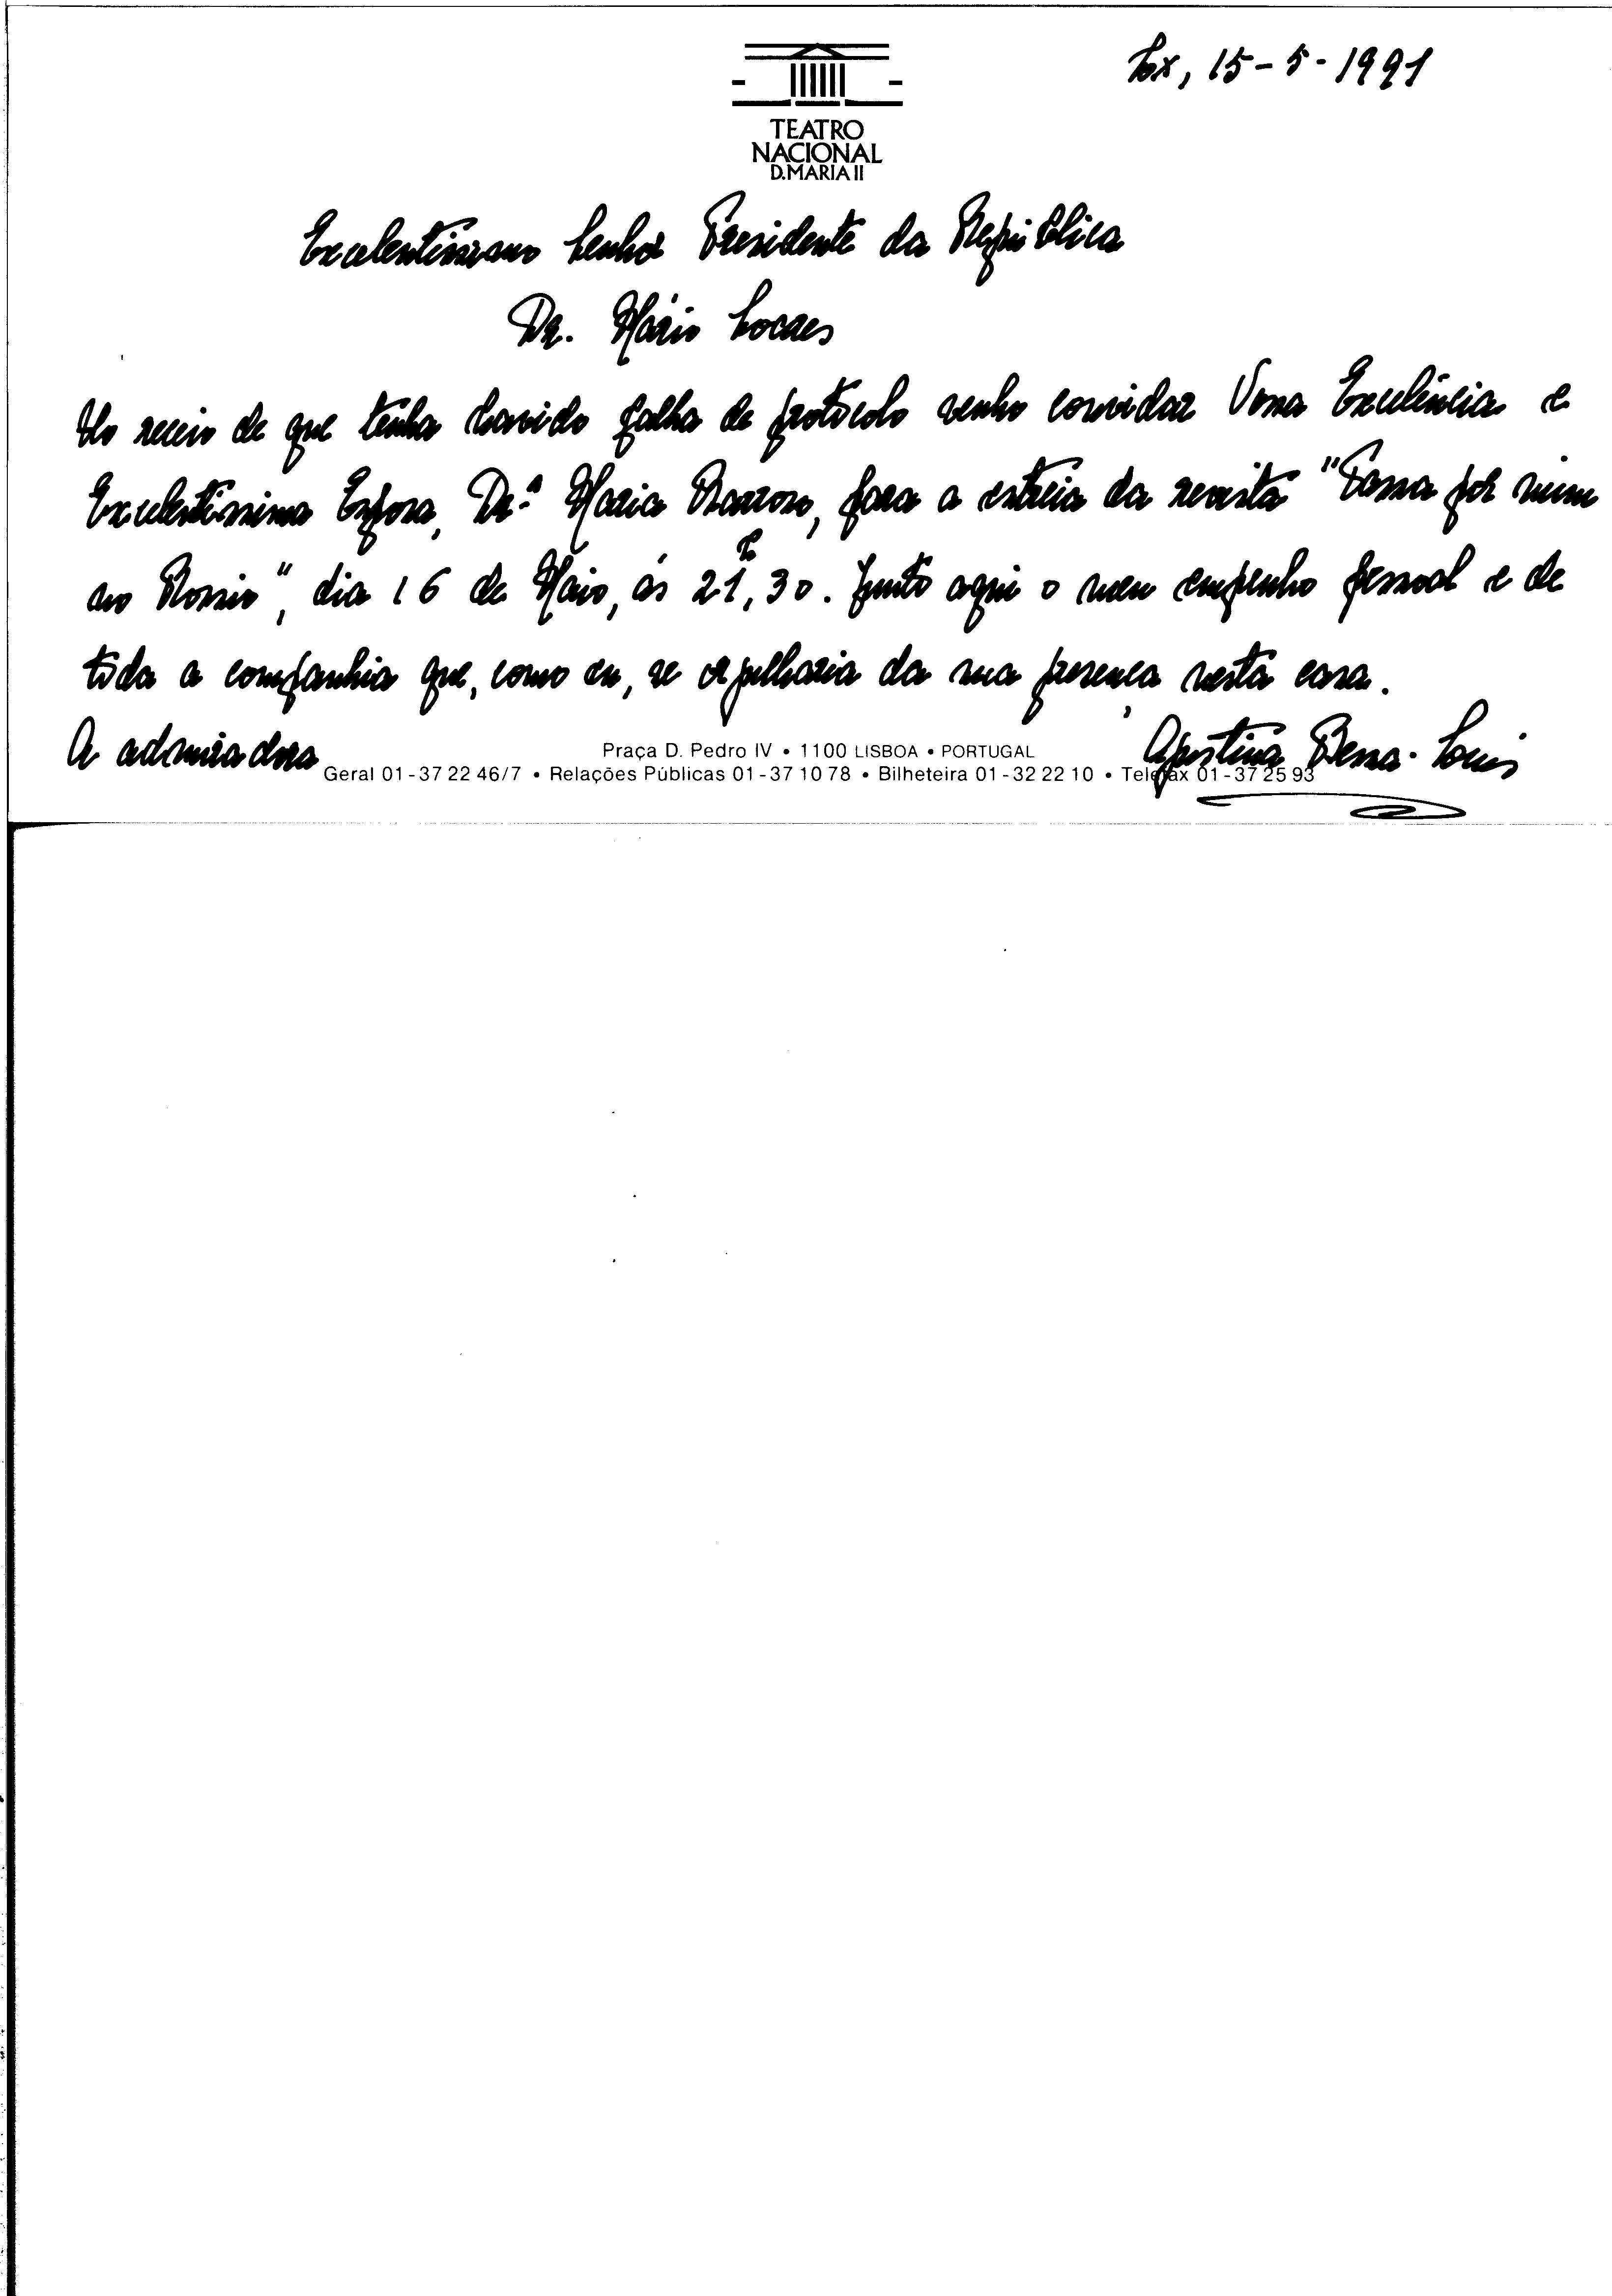 Lx, 15-5-1991
TEATRO
NACIONAL
D.MARIA II
Excelentissimo Senhor Presidente da República
Dr. Mário Soares
No receio de que tenha havido falha de protocolo venho convidar Vossa Excelência e
Excelentissima Esposa, Dr.ª Maria Barroso, para a estreia da revista "Passa por mim
no Rossio", dia 16 de Maio, ás 21h,30. Junto aqui o meu empenho pessoal e de
toda a companhia que, como eu, se orgulharia da sua presença nesta casa.
A admiradora
Agustina Bessa-Louis
Praça D. Pedro IV • 1100 LISBOA • PORTUGAL
Geral 01-37 22 46/7 • Relações Públicas 01-37 10 78 • Bilheteira 01-32 22 10 • Telefax 01-37 25 93